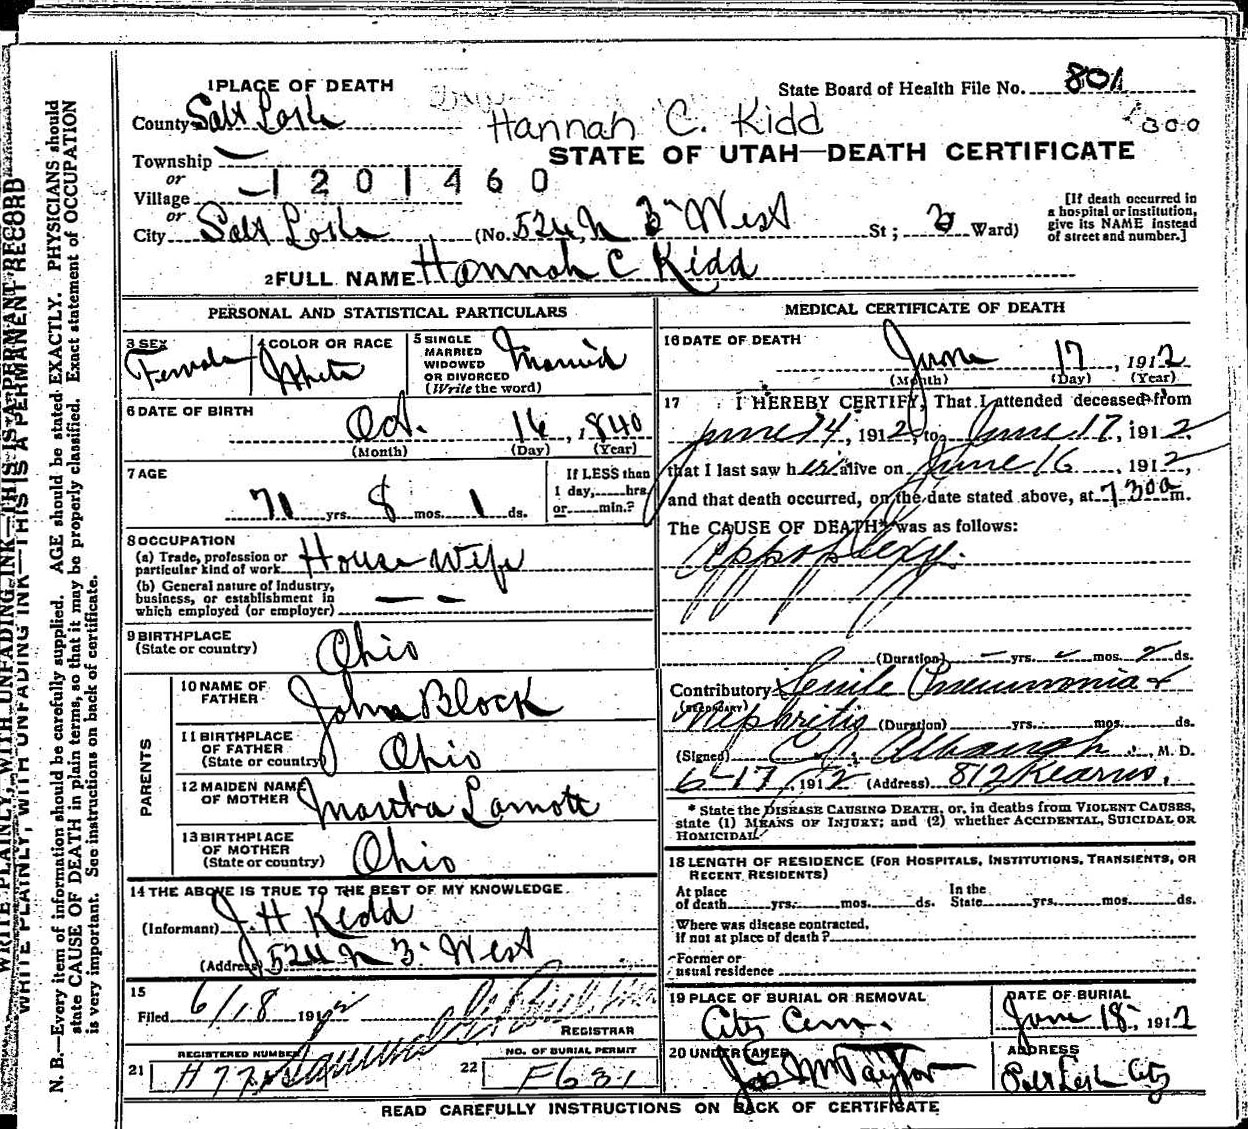 1 PLACE OF DEATH
State Board of Health File No. 801
County Salt Lake
Hannah C. Kidd
300
Township —
STATE OF UTAH—DEATH CERTIFICATE
or
Village — 1 2 0 1 4 6 0
or
City Salt Lake (No. 524 N 3 West St; 3 Ward)
[If death occurred in a hospital or institution, give its NAME instead of street and number.]
2 FULL NAME Hannah C Kidd
PERSONAL AND STATISTICAL PARTICULARS
3 SEX Female
4 COLOR OR RACE White
5 SINGLE MARRIED WIDOWED OR DIVORCED (Write the word) Married
6 DATE OF BIRTH Oct. 16, 1840
(Month) (Day) (Year)
7 AGE 71 yrs. 8 mos. 1 ds.
If LESS than 1 day,......hrs. or......min.?
8 OCCUPATION
(a) Trade, profession or particular kind of work House Wife
(b) General nature of Industry, business, or establishment in which employed (or employer) — —
9 BIRTHPLACE (State or country) Ohio
PARENTS
10 NAME OF FATHER John Block
11 BIRTHPLACE OF FATHER (State or country) Ohio
12 MAIDEN NAME OF MOTHER Martha Lamott
13 BIRTHPLACE OF MOTHER (State or country) Ohio
14 THE ABOVE IS TRUE TO THE BEST OF MY KNOWLEDGE.
(Informant) J. H Kidd
(Address) 524 N 3 West
15
Filed 6/18 191
REGISTRAR
REGISTERED NUMBER
21 H77
NO. OF BURIAL PERMIT
22 F631
MEDICAL CERTIFICATE OF DEATH
16 DATE OF DEATH
June 17, 1912
(Month) (Day) (Year)
17 I HEREBY CERTIFY, That I attended deceased from
June 14, 1912, to June 17, 1912,
that I last saw her alive on June 16, 1912,
and that death occurred, on the date stated above, at 7 30 a m.
The CAUSE OF DEATH* was as follows:
Appoplexy.
(Duration) – yrs. – mos. 2 ds.
Contributory Senile Pneumonia &
(SECONDARY)
Nephritis (Duration) yrs. mos. ds.
(Signed) Albaugh, M. D.
6-17, 1912 (Address) 812 Kearns.
* State the DISEASE CAUSING DEATH, or, in deaths from VIOLENT CAUSES, state (1) MEANS OF INJURY; and (2) whether ACCIDENTAL, SUICIDAL OR HOMICIDAL.
18 LENGTH OF RESIDENCE (FOR HOSPITALS, INSTITUTIONS, TRANSIENTS, OR RECENT RESIDENTS)
At place of death yrs. mos. ds.
In the State yrs. mos. ds.
Where was disease contracted, if not at place of death?
Former or usual residence
19 PLACE OF BURIAL OR REMOVAL
City Cem.
DATE OF BURIAL
June 18, 1912
20 UNDERTAKER
Jos Wm Taylor
ADDRESS
Salt Lake City
READ CAREFULLY INSTRUCTIONS ON BACK OF CERTIFICATE
WRITE PLAINLY, WITH UNFADING INK—THIS IS A PERMANENT RECORD
WRITE PLAINLY, WITH UNFADING INK—THIS IS A PERMANENT RECORD
N. B.—Every item of information should be carefully supplied. AGE should be stated EXACTLY. PHYSICIANS should
state CAUSE OF DEATH in plain terms, so that it may be properly classified. Exact statement of OCCUPATION
is very important. See instructions on back of certificate.